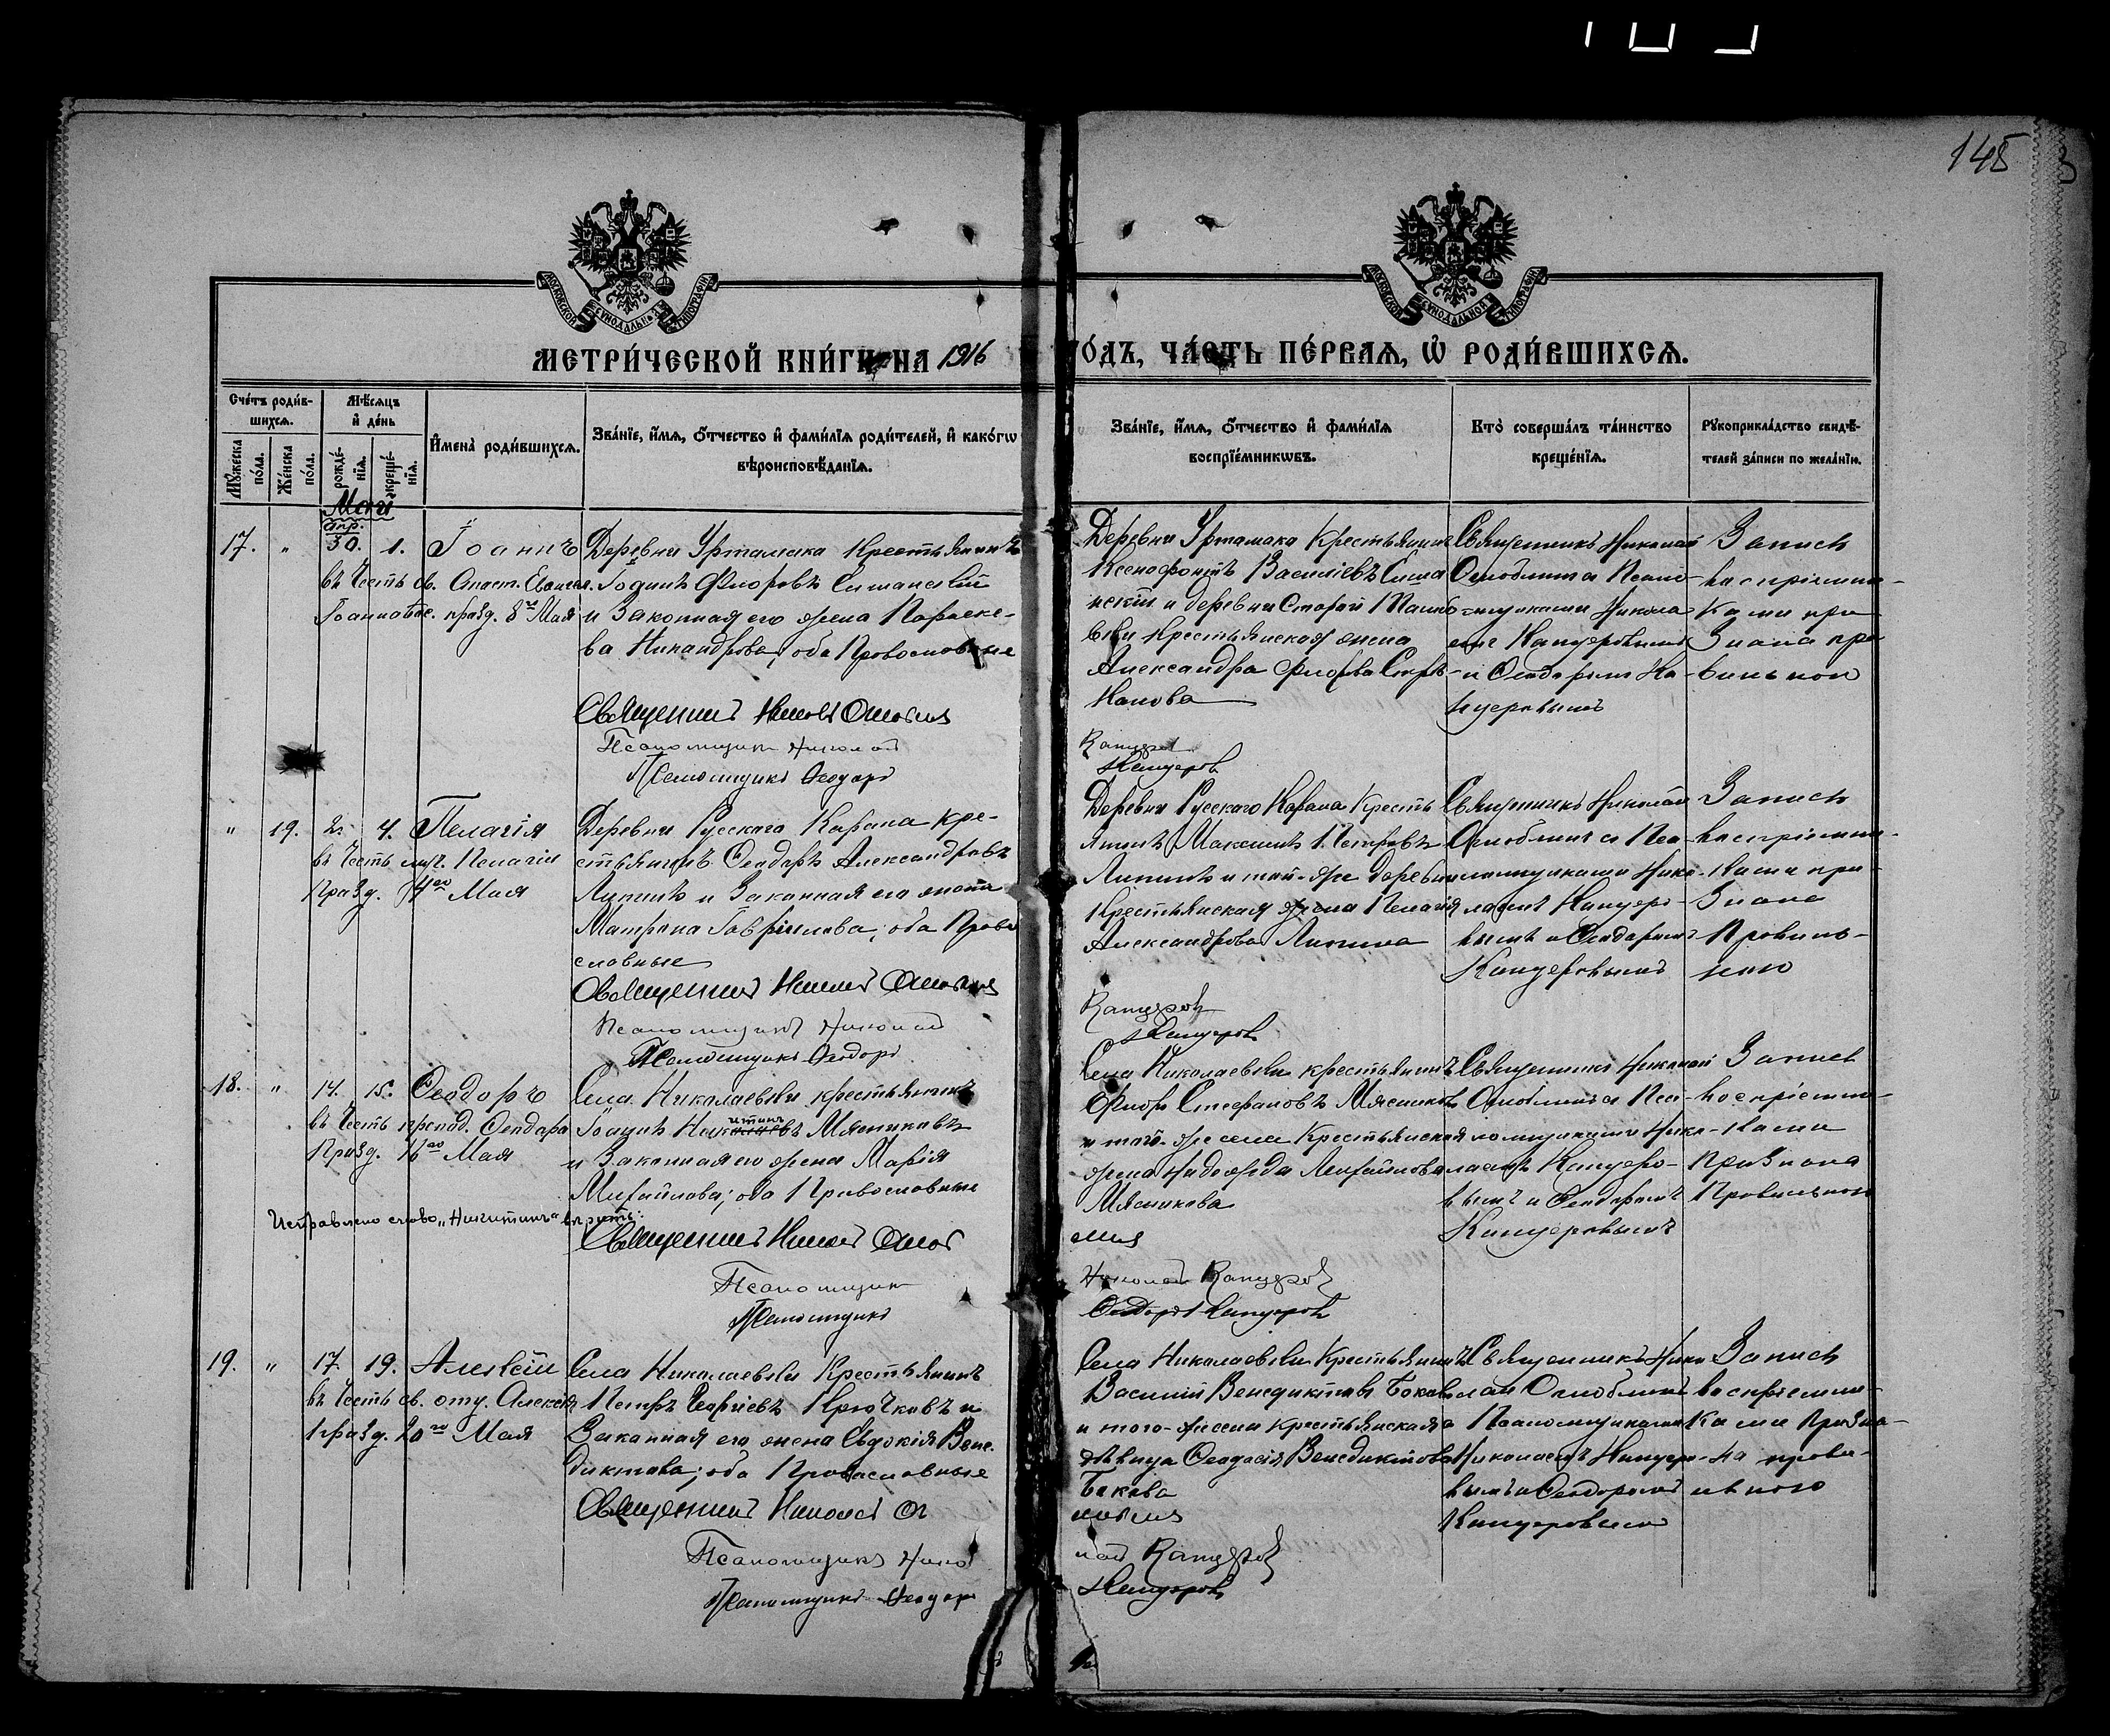 145
МОСКОВСКОЙ СѴНОДАЛЬНОЙ ТИПОГРАФІИ
МОСКОВСКОЙ СѴНОДАЛЬНОЙ ТИПОГРАФІИ
МЕТРИ́ЧЕСКОЙ КНИ́ГИ НА 1916
ГО́ДЪ, ЧА́СТЬ ПЕ́РВАѦ, Ѽ РОДИ́ВШИХСѦ.
Сче́тъ роди́в-
шихсѧ.
Мꙋ́жеска по́ла.
Же́нска по́ла.
Мѣ́сѧцъ
и҆ де́нь
рожде́-
нїѧ.
креще́-
нїѧ.
И҆мена̀ роди́вшихсѧ.
Зва́нїе, и҆́мѧ, ѻ҆́тчество и҆ фами́лїѧ роди́телей, и҆ како́гѡ
вѣроисповѣ́данїѧ.
Зва́нїе, и҆́мѧ, ѻ҆́тчество и҆ фами́лїѧ
воспрїе́мникѡвъ.
Кто̀ соверша́лъ та́инство
креще́нїѧ.
Рꙋкоприкла́дство свидѣ́-
телей за́писи по жела́нїю.
Май
апр.
17. " 30. 1. Іоаннъ
въ честь св. Апост. Евангел.
Іоанна Бог. празд. 8го Мая
Деревни Уртамака Крестьянинъ
Іоаннъ Флоровъ Симанскій
и Законная его жена Параске-
ва Никандрова; оба Православные
Священникъ Николай Оглоблин
Псаломщикъ Николай
Псаломщикъ Ѳеодоръ
Деревни Уртамака Крестьянинъ
Ксенофонтъ Василіевъ Сима
нскій и деревни Старой
Крестьянская жена
Александра Флорова
нкова
Канцеров
Канцеров
Священникъ Николай
Оглоблинъ с Псало-
мщиками Никола-
емъ Канцеровымъ
и Ѳеодоромъ Ка-
нцеровымъ
Запись
воспріемни-
ками при
знана пра
вильной
" 19. 2. 4. Пелагія
въ честь муч. Пелагіи
Празд. 4го Мая
Деревни Русскаго Карана кре-
стьянинъ Ѳеодоръ Александровъ
Липинъ и Законная его жена
Матрона Гавріилова; оба Право
славные
Священникъ Николай Оглоблин
Псаломщикъ Николай
Псаломщикъ Ѳеодоръ
Деревни Русскаго Карана Кресть
янинъ Максимъ Петровъ
Липинъ и той-же деревни
Крестьянская жена Пелагія
Александрова Липина
Канцеров
Канцеров
Священникъ Николай
Оглоблинъ с Пса-
ломщиками Нико-
лаемъ Канцеро-
вымъ и Ѳеодоромъ
Канцеровымъ
Запись
воспріемни-
ками при-
знана
Правиль-
ною
18. " 14. 15. Ѳеодоръ
въ честь препод. Ѳеодора
Празд. 16го Мая
Исправлено слово „Никитинъ“ вѣрить:
Села Николаевки крестьянинъ
итинъ
Іоаннъ Ник Мясниковъ
и Законная его жена Марія
Михайлова; оба Православные
Священникъ Николай Оглоб
Псаломщик
Псаломщикъ
Села Николаевки крестьянинъ
Флоръ Стефановъ Мясников
и того-же села Крестьянская
жена Надежда Михайлова
Мясникова
лин
Николай Канцеров
Ѳеодоръ Канцеров
Священникъ Николай
Оглоблинъ с Пса-
ломщиками Нико-
лаемъ Канцеро-
вымъ и Ѳеодоромъ
Канцеровымъ
Запись
воспріемни-
ками
признана
Правильною
19. " 17. 19. Алексій
въ честь св. отц. Алексія
празд. 20го Мая
Села Николаевки Крестьянинъ
Петръ Георгіевъ Крючковъ и
Законная его жена Евдокія Вене-
диктова; оба Православные
Священникъ Николай Ог
Псаломщикъ Нико
Псаломщикъ Ѳеодоръ
Села Николаевки Крестьянинъ
Василій Венедиктовъ Боков
и того-же села Крестьянская
дѣвица Ѳеодосія Венедиктова
Бокова
лоблин
лай Канцеров
Канцеров
Священникъ Нико
лай Оглоблинъ
с Псаломщиками
Николаемъ Канцеро-
вымъ и Ѳеодоромъ
Канцеровымъ
Запись
воспріемни-
ками призна-
на прави-
льною